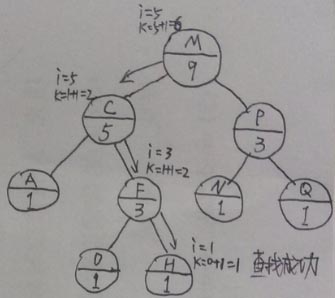 i=5
k=5+1=6
M
9
i=5
k=1+1=2
C
5
P
3
i=3
k=1+1=2
A
1
F
3
N
1
Q
1
i=1
k=0+1=1
查找成功
D
1
H
1